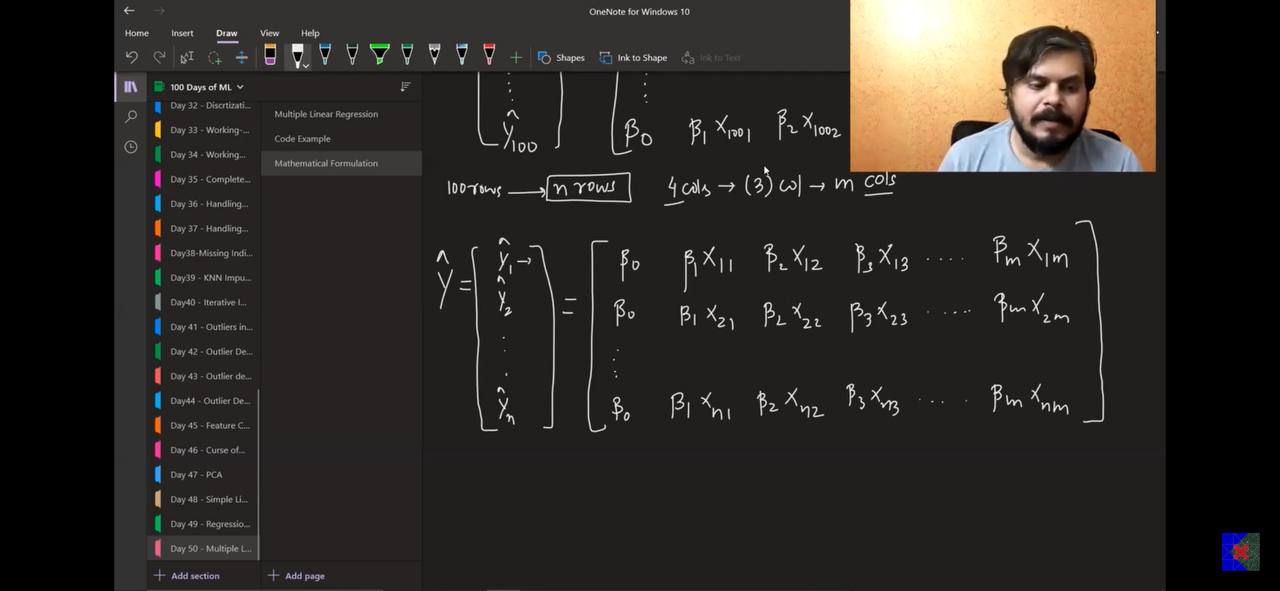 OneNote for Windows 10
Home Insert Draw View Help
Shapes Ink to Shape Ink to Text
100 Days of ML
Day 32 - Discrtizati...
Day 33 - Working-...
Day 34 - Working...
Day 35 - Complete...
Day 36 - Handling...
Day 37 - Handling...
Day38-Missing Indi...
Day39 - KNN Impu...
Day40 - Iterative I...
Day 41 - Outliers in...
Day 42 - Outlier De...
Day 43 - Outlier de...
Day44 - Outlier De...
Day 45 - Feature C...
Day 46 - Curse of...
Day 47 - PCA
Day 48 - Simple Li...
Day 49 - Regressio...
Day 50 - Multiple L...
+ Add section
Multiple Linear Regression
Code Example
Mathematical Formulation
+ Add page
ŷ₁₀₀ β₀ β₁ X₁₀₀₁ β₂ X₁₀₀₂
100 rows → n rows 4 cols → (3) col → m cols
Ŷ = [ŷ₁ → = [β₀ β₁ X₁₁ β₂ X₁₂ β₃ X₁₃ .... βm X₁m]
ŷ₂ β₀ β₁ X₂₁ β₂ X₂₂ β₃ X₂₃ ..... βm X₂m
ŷn] β₀ β₁ Xn₁ β₂ Xn₂ β₃ Xn₃ .... βm Xnm